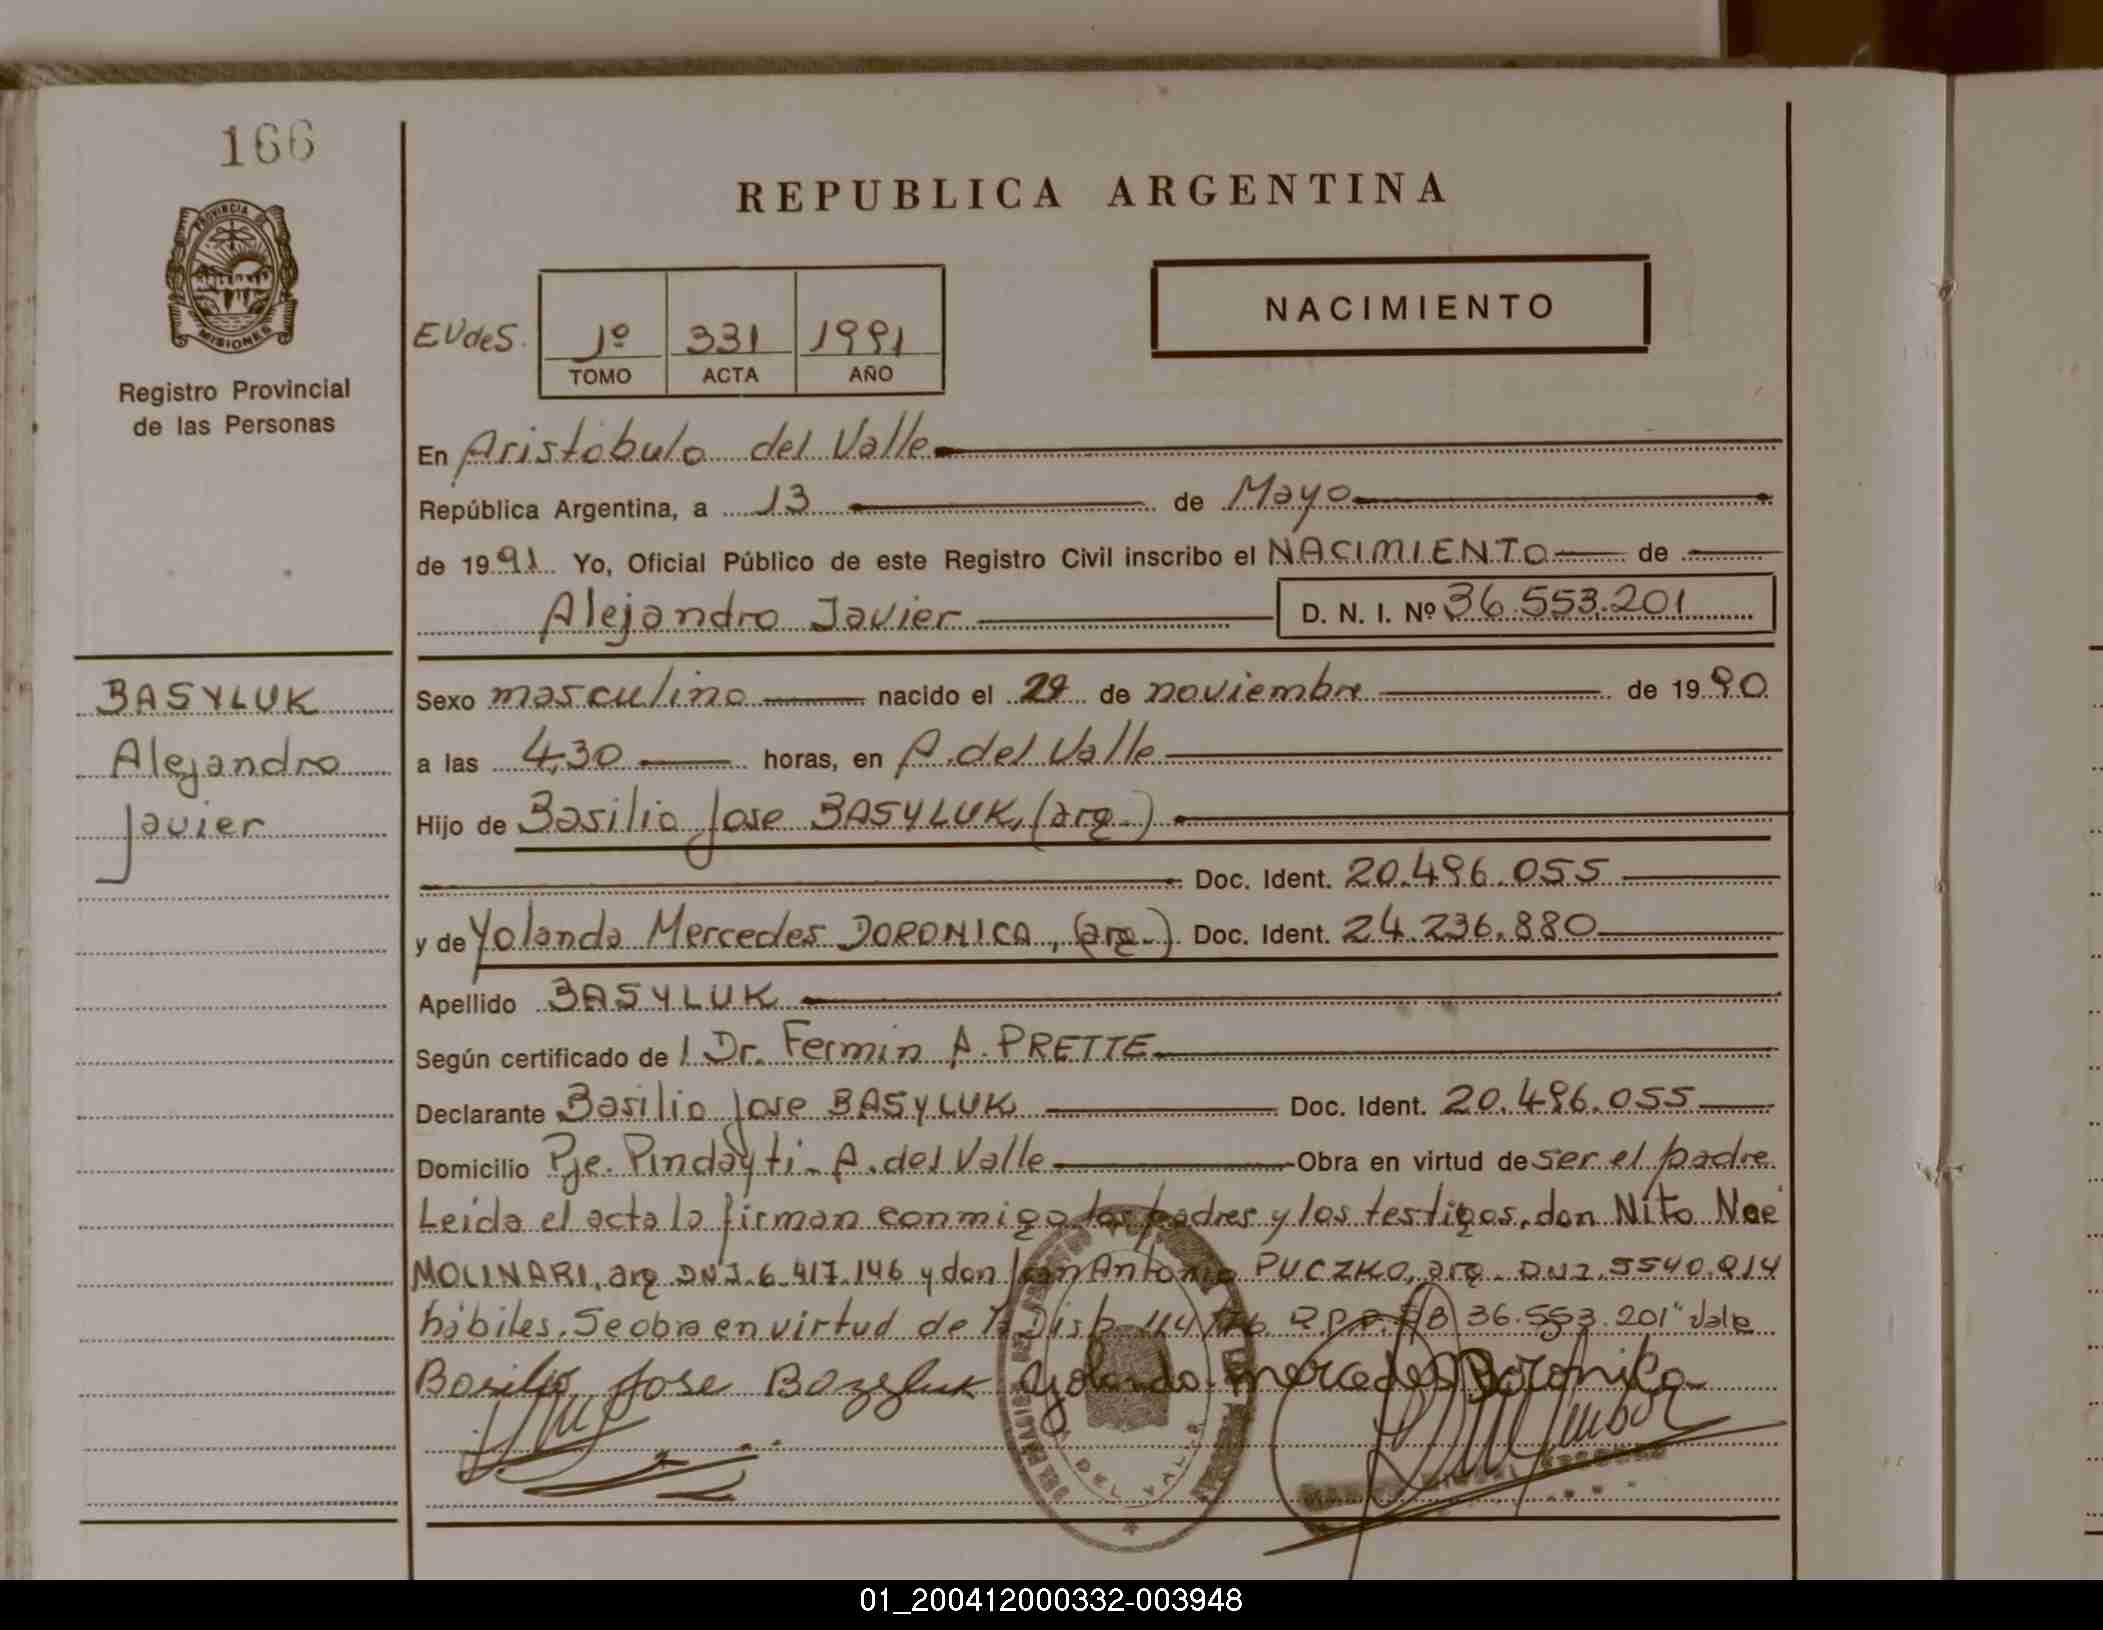 166
PROVINCIA
MISIONES
Registro Provincial
de las Personas
REPUBLICA ARGENTINA
NACIMIENTO
EVdeS.
1º 331 1991
TOMO ACTA AÑO
En Aristóbulo del Valle
República Argentina, a 13 de Mayo
de 1991 Yo, Oficial Público de este Registro Civil inscribo el NACIMIENTO de
Alejandro Javier D. N. I. Nº 36.553.201
BASYLUK
Alejandro
Javier
Sexo masculino nacido el 29 de noviembre de 1990
a las 4,30 horas, en A. del Valle
Hijo de Basilio Jose BASYLUK, (arg.)
Doc. Ident. 20.496.055
y de Yolanda Mercedes DORONICA, (arg.) Doc. Ident. 24.236.880
Apellido BASYLUK
Según certificado de l Dr. Fermin A. PRETTE
Declarante Basilio Jose BASYLUK Doc. Ident. 20.496.055
Domicilio Pje. Pindayti - A. del Valle Obra en virtud de ser el padre
Leída el acta la firman conmigo los padres y los testigos, don Nito Noe
MOLINARI, arg DNI. 6.417.146 y don Juan Antonio PUCZKO, arg. DNI. 5540.914
hábiles. Se obra en virtud de la Disp. 36.553.201" Vale
Basilio Jose Bazyluk Yolanda Mercedes Doronika
DEL VALLE
01_200412000332-003948